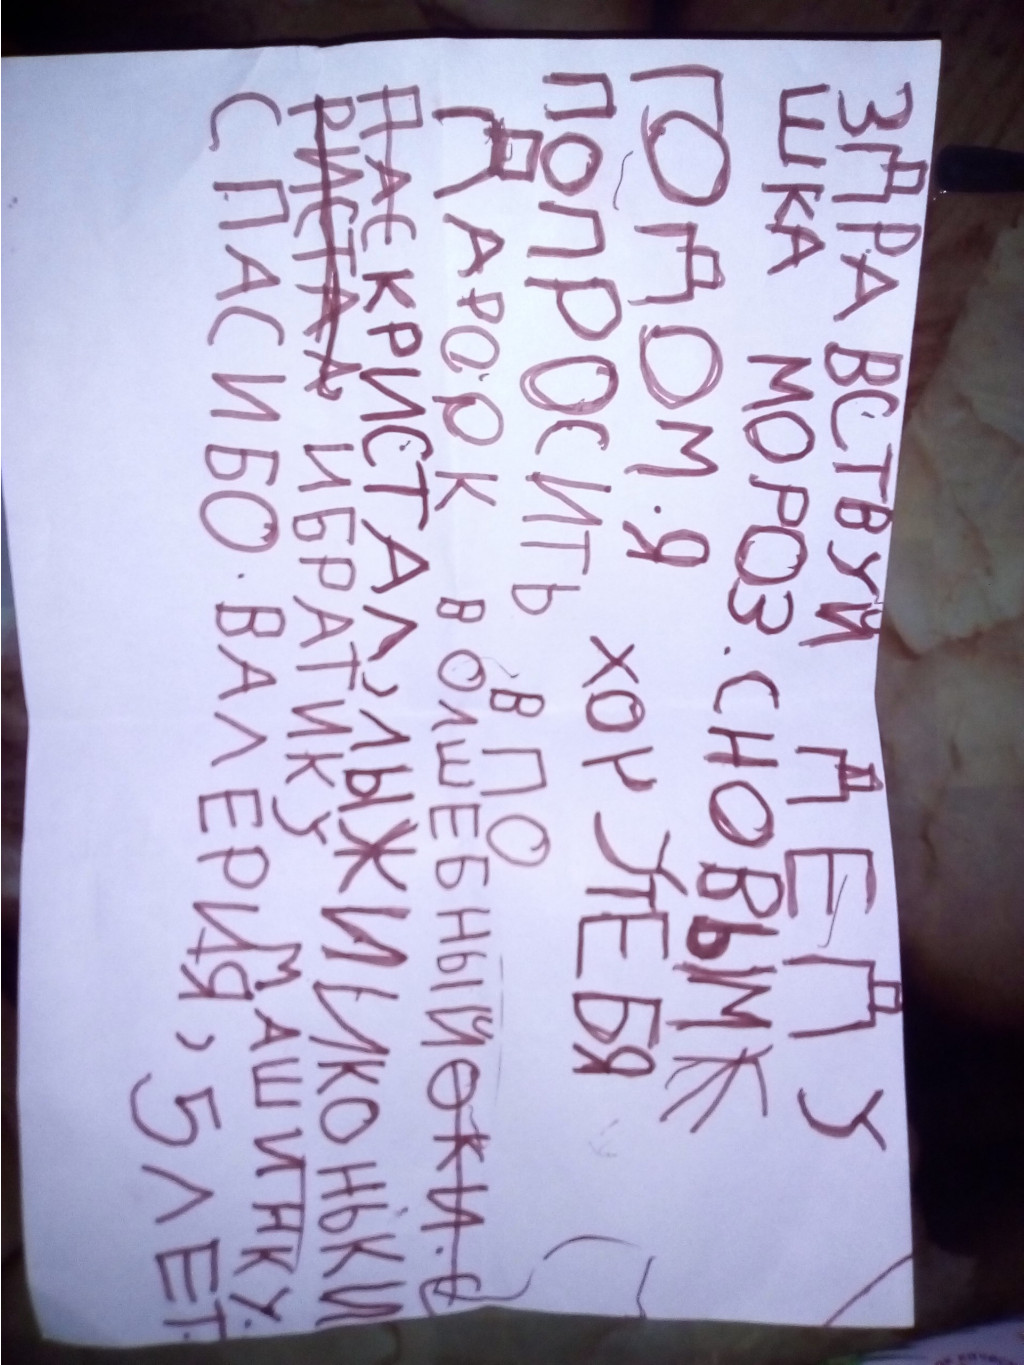 ЗДРАВСТВУЙ ДЕДУ
ШКА МОРОЗ. СНОВЫМ
ГОДОМ. Я ХОЧУ ТЕБЯ
ПОПРОСИТЬ В ПО
ДАРОК ВОЛШЕБНЫЙ
КРИСТАЛ, ЛЫЖИ И КОНЬКИ
И БРАТИКУ МАШИНКУ.
СПАСИБО. ВАЛЕРИЯ, 5 ЛЕТ.